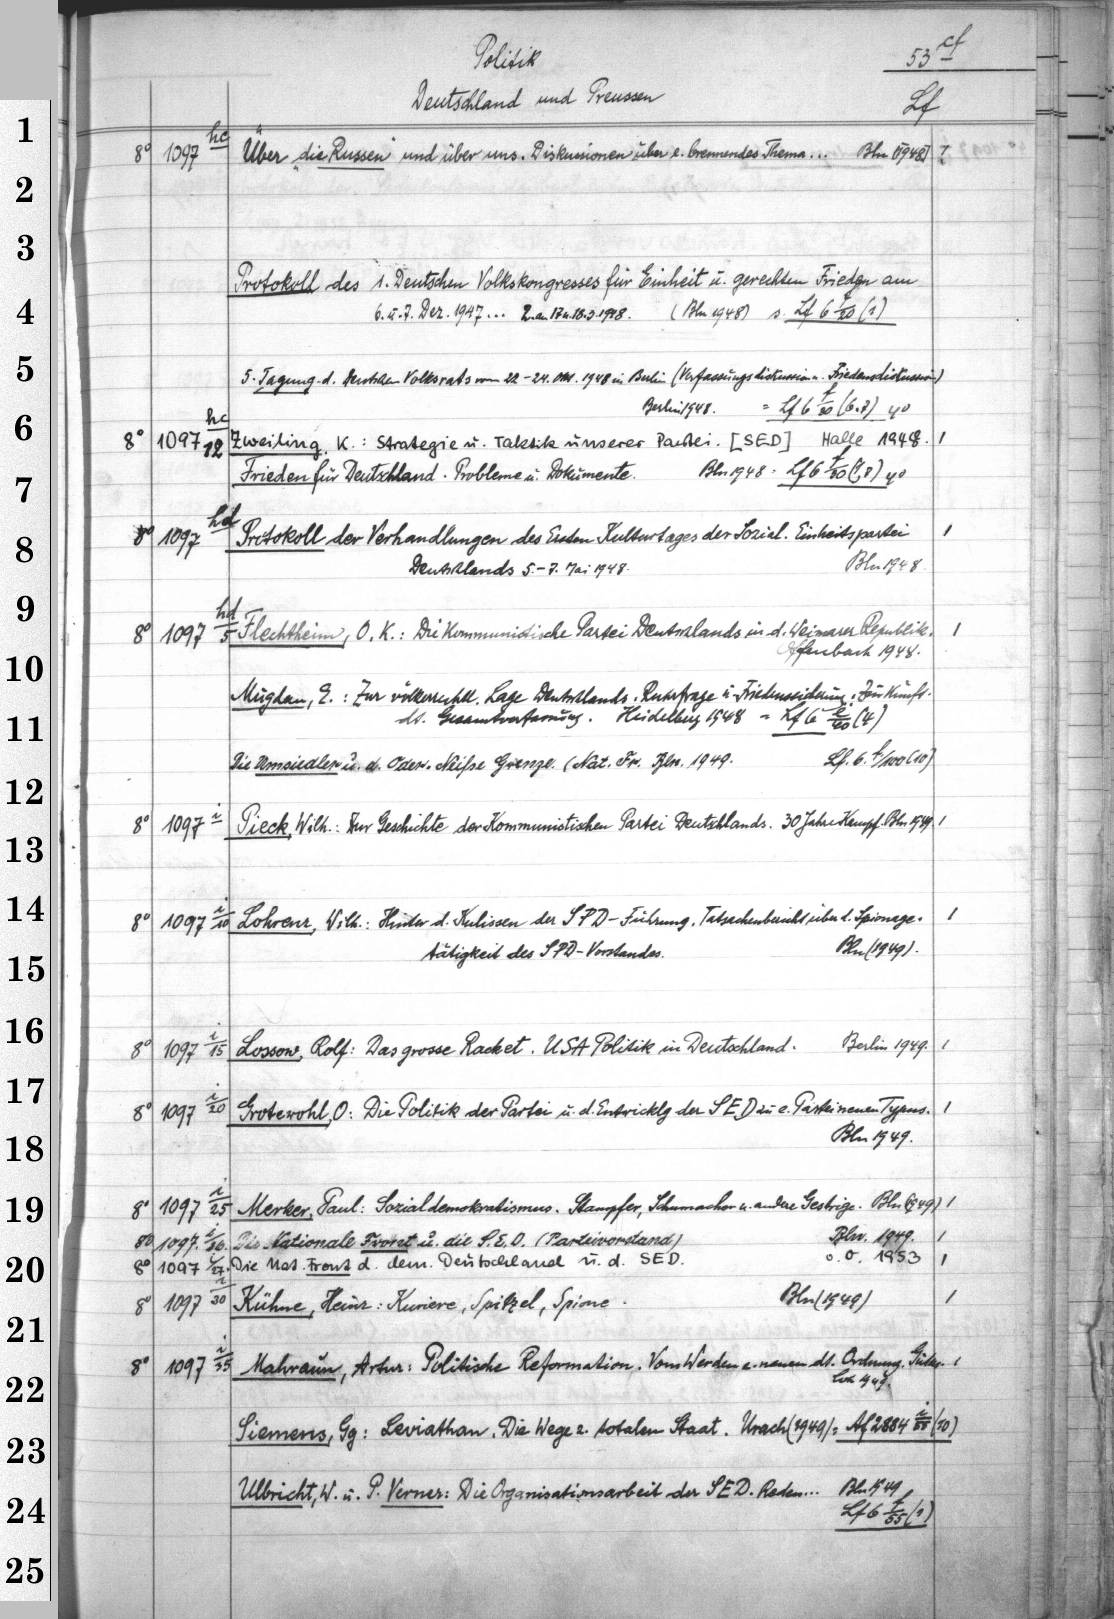 Politik 53 cf
Deutschland und Preussen Lf
1
8° 1097 hc Über "die Russen" und über uns. Diskussionen über e. brennendes Thema... Bln [1948] 1
2
3
Protokoll des 1. Deutschen Volkskongresses für Einheit u. gerechten Frieden am
4
6. u. 7. Dez. 1947... 2. am 17. u. 18.3.1948. (Bln 1948) s. Lf 6 f/20 (1)
5
5. Tagung d. Deutschen Volksrats vom 22-24. Okt. 1948 in Berlin (Verfassungsdiskussion u. Friedensdiskussion)
Berlin 1948. = Lf 6 f/20 (6.7) 4°
6
8° 1097 hc/12 Zweiling, K.: Strategie u. Taktik unserer Partei. [SED] Halle 1948. 1
Frieden für Deutschland. Probleme u. Dokumente. Bln 1948. Lf 6 f/20 (7,8) 4°
7
8° 1097 hd Protokoll der Verhandlungen des Ersten Kulturtages der Sozial. Einheitspartei 1
8
Deutschlands 5.-7. Mai 1948. Bln 1948.
9
8° 1097 hd/5 Flechtheim, O. K.: Die Kommunistische Partei Deutschlands in d. Weimarer Republik. 1
Offenbach 1948.
10
Mugdan, E.: Zur völkerrechtl. Lage Deutschlands. Ruhrfrage u. Friedenssicherung. Zur künft.
11
dt. Gesamtverfassung. Heidelberg 1948 = Lf 6 (4)
Die Umsiedler u. d. Oder-Neiße Grenze. (Nat. Fr. Bln. 1949. Lf. 6. f/100 (10)
12
8° 1097 i Pieck, Wilh.: Zur Geschichte der Kommunistischen Partei Deutschlands. 30 Jahre Kampf. Bln 1949. 1
13
14
8° 1097 i/10 Lohrenz, Wilh.: Hinter d. Kulissen der SPD-Führung. Tatsachenbericht über d. Spionage- 1
tätigkeit des SPD-Vorstandes. Bln (1949).
15
16
8° 1097 i/15 Lossow, Rolf: Das grosse Racket. USA Politik in Deutschland. Berlin 1949. 1
17
8° 1097 i/20 Grotewohl, O: Die Politik der Partei u. d. Entwicklg der SED zu e. Partei neuen Typus. 1
Bln 1949.
18
19
8° 1097 i/25 Merker, Paul: Sozialdemokratismus. Stampfer, Schumacher u. andere Gestrige. Bln (1949) 1
8° 1097. i/26. Die Nationale Front u. die S.E.D. (Parteivorstand) Bln. 1949. 1
20
8° 1097 i/27. Die Nat. Front d. dem. Deutschland u. d. SED. o. O. 1953 1
8° 1097 i/30 Kühne, Heinz: Kuriere, Spitzel, Spione. Bln (1949) 1
21
8° 1097 i/35 Mahraun, Artur: Politische Reformation. Vom Werden e. neuen dt. Ordnung. Güters- 1
22
loh 1949.
Siemens, Gg: Leviathan. Die Wege z. totalen Staat. Urach (1949) = Af 2884 (10)
23
Ulbricht, W. u. P. Verner: Die Organisationsarbeit der SED. Reden... Bln 1949
24
Lf 6 f/55 (1)
25